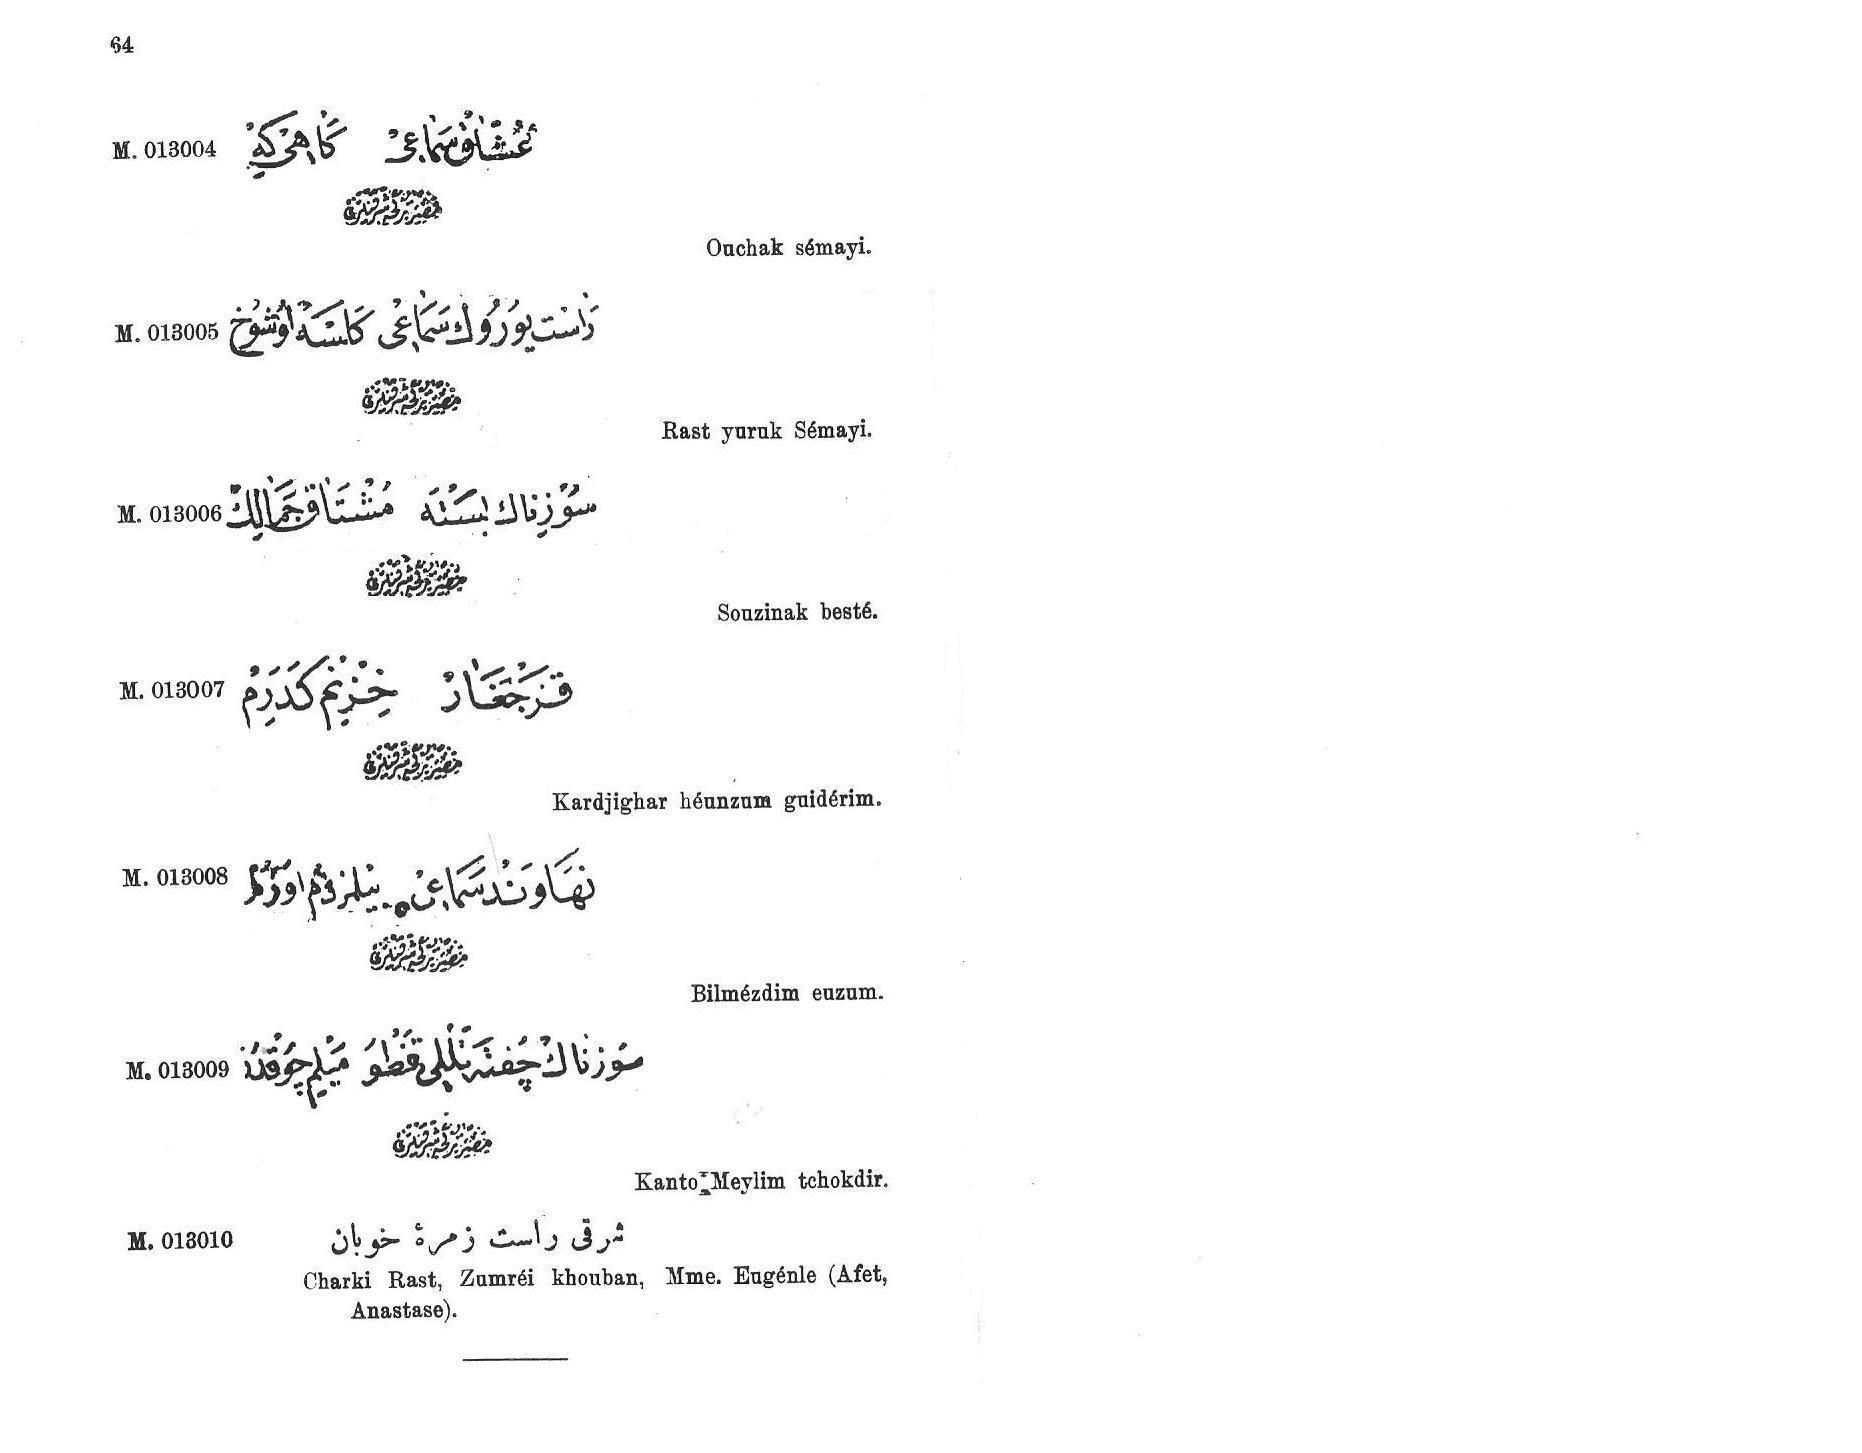 64
M. 013004 عُشَّاق سَمَاعِى كَاهِى كَه
Ouchak sémayi.
M. 013005 رَاسْت يُورُوك سَمَاعِى كَلسَه اُوشُوخ
Rast yuruk Sémayi.
M. 013006 سُوزِناك بَسْتَه مُشْتَاق جَمَالِك
Souzinak besté.
M. 013007 قَرَجَغَار كَدَرِم
Kardjighar héunzum guidérim.
M. 013008 نهَاوَنْد سَمَاعِى بيلمزدم اوزم
Bilmézdim euzum.
M. 013009 سُوزناك چفته تللى مَيْلِم چُوقدر
Kanto-Meylim tchokdir.
M. 013010 شرقى راست زمرۀ خوبان
Charki Rast, Zumréi khouban, Mme. Eugénle (Afet,
Anastase).